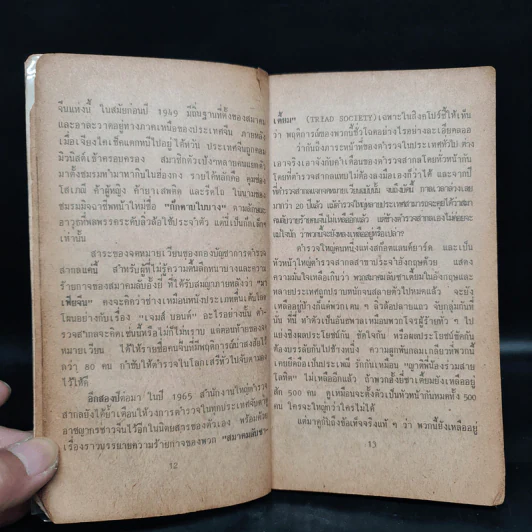 จีนแห่งนี้ ในสมัยก่อนปี 1949 มีถิ่นฐานที่ตั้งของสมาคม
และอาละวาดอยู่ทางภาคเหนือของประเทศจีน ภายหลัง
เมื่อเจียงไคเช็คแตกทัพไปอยู่ไต้หวัน ประเทศจีนถูกคอม
มิวนิสต์เข้าครอบครอง สมาชิกตัวเป้งๆหลายคนแยกตัว
มาตั้งชมรมทำมาหากินในฮ่องกง รายได้หลักคือ คุมซ่อง
โสเภณี ค้าผู้หญิง ค้ายาเสพติด และรีดไถ ในนามของ
ชมรมมิจฉาชีพหน้าใหม่ชื่อ "กึกพายในบาง" ตามลักษณะ
อาวุธที่พลพรรคระดับลิ่วล้อใช้ประจำตัว แต่นี่เป็นกึ๊กเล็กๆ
เท่านั้น
สาระของจดหมายเวียนของกองบัญชาการตำรวจ
สากลแค่นี้ สำหรับผู้ที่ไม่รู้ความตื้นลึกหนาบางและความ
ร้ายกาจของสมาคมลับอั้งยี่ ที่ได้รับสมญาภายหลังว่า "มา
เฟียจีน" คงจะคิดว่าช่างเหมือนหนังประเภทตื่นเต้นโลด
โผนอย่างกับเรื่อง "เจมส์ บอนด์" อะไรอย่างนั้น ตำ
รวจสากลจะคิดเช่นนี้หรือไม่ก็ไม่ทราบ แต่ตอนท้ายของจด
หมายเวียน ได้ให้รายชื่อคนจีนที่มีพฤติการณ์น่าสงสัยไว้
กว่า 80 คน กำชับให้ตำรวจในโลกเสรีทั่วไปจับตามอง
ไว้ให้ดี
อีกสองปีต่อมา ในปี 1965 สำนักงานใหญ่ตำรวจ
สากลยังได้ย้ำเตือนให้วงการตำรวจในทุกประเทศจับตาดู
อาชญากรชาวจีนไว้อีกในนิตยสารของตัวเอง พร้อมด้วย
เรื่องราวบรรยายความร้ายกาจของพวก "สมาคมลับซา-
12
เตี้ยม" (TRIAD SOCIETY) เฉพาะในถิ่นตะโปรช์ชี้ให้เห็น
ว่า พฤติการณ์ของพวกนี้ชั่วโฉดอย่างไรอย่างละเอียดลออ
ว่ากันถึงภาระหน้าที่ของตำรวจในประเทศทั่วไป ต่าง
เอาจริงเอาจังกับคำเตือนของตำรวจสากลโดยทั่วหน้ากัน
โดยที่ตำรวจสากลแทบไม่ต้องลงมือเองก็ว่าได้ และจากที่
ที่ตำรวจสากลแจกจดหมายเวียนฉบับนั้น จนถึงบัดนี้ กาลเวลาล่วงเลย
มากว่า 20 ปีแล้ว แม้ตำรวจใหญ่หลายประเทศสามารถจะคุยได้ว่าสมาคม
ลับวายร้ายคนจีนไม่เหลืออีกแล้ว แต่ข้างตำรวจสากลเองไม่ค่อยจะ
แน่ใจนัก ว่าพวกนี้จะยังคงเหลืออยู่หรือเปล่า?
ตำรวจใหญ่คนหนึ่งแห่งสก๊อตแลนด์ยาร์ด และเป็น
หัวหน้าใหญ่ตำรวจสากลสาขาประจำอังกฤษด้วย แสดง
ความมั่นใจเหลือเกินว่า พวกสมาคมลับซาเตี้ยมในอังกฤษและ
หลายประเทศถูกปราบหนักจนสลายตัวไปหมดแล้ว จะยัง
เหลืออยู่บ้างก็แค่พวกเดน ๆ ลิ่วล้อปลายแถว จับกลุ่มกันที่
นั่น ที่นี่ ทำตัวเป็นอันธพาลเหมือนพวกโจรผู้ร้ายทั่ว ๆ ไป
แย่งชิงผลประโยชน์กัน ขัดใจกัน หรือผลประโยชน์ขัดกัน
ต้องบรรลัยกันไปข้างหนึ่ง ความผูกพันกลมเกลียวที่พวกนี้
เคยยึดถือเป็นประเพณี รักกันเหมือน "ญาติพี่น้องร่วมสาย
โลหิต" ไม่เหลืออีกแล้ว ถ้าพวกอั้งยี่ซาเตี้ยมยังเหลืออยู่
สัก 500 คน ดูเหมือนจะตั้งตัวเป็นหัวหน้ากันหมดทั้ง 500
คน ใครจะใหญ่กว่าใครไม่ได้
แต่มาดูกันถึงข้อเท็จจริงแท้ ๆ ว่า พวกนี้ยังเหลืออยู่
13